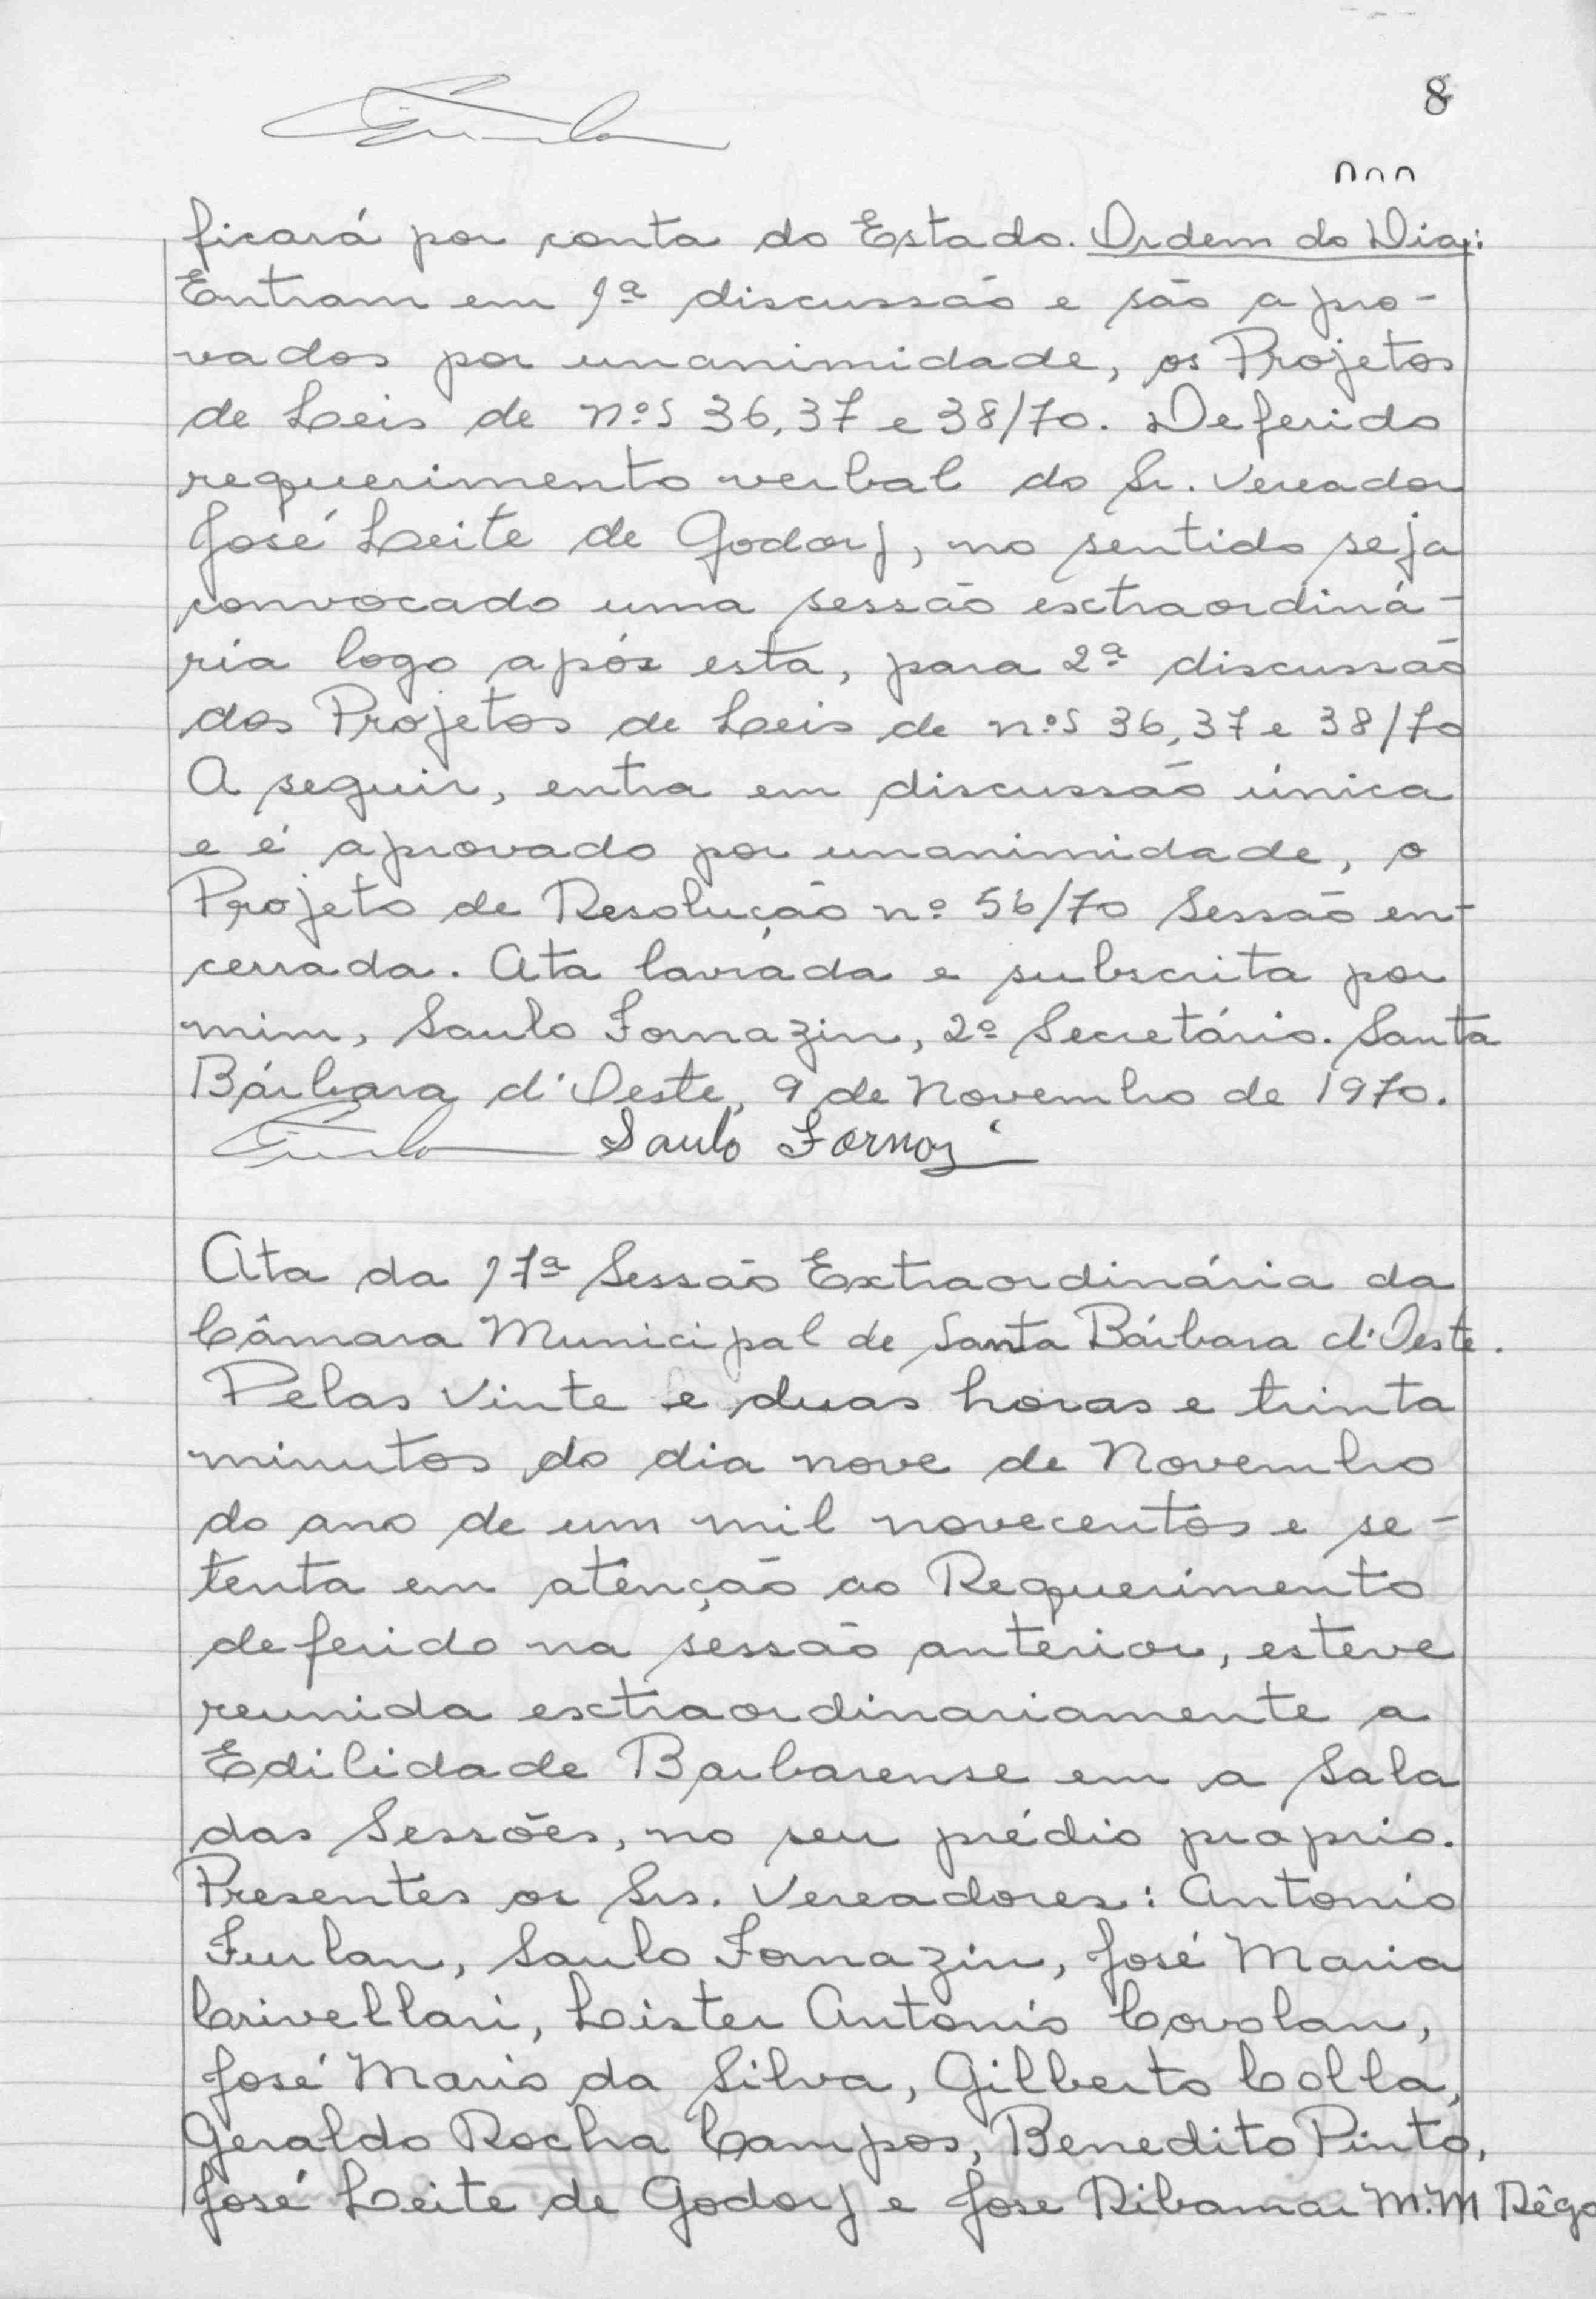 8
ficará por conta do Estado. Ordem do Dia:
Entram em 1ª discussão e são apro-
vados por unanimidade, os Projetos
de Leis de nºs 36, 37 e 38/70. Deferido
requerimento verbal do Sr. Vereador
José Leite de Godoy, no sentido seja
convocado uma sessão extraordiná-
ria logo após esta, para 2ª discussão
dos Projetos de Leis de nºs 36, 37 e 38/70
A seguir, entra em discussão única
e é aprovado por unanimidade, o
Projeto de Resolução nº 56/70 Sessão en-
cerrada. Ata lavrada e subscrita por
mim, Saulo Fornazin, 2º Secretário. Santa
Bárbara d'Oeste, 9 de Novembro de 1970.
Saulo
Ata da 17ª Sessão Extraordinária da
Câmara Municipal de Santa Bárbara d'Oeste.
Pelas Vinte e duas horas e trinta
minutos do dia nove de Novembro
do ano de um mil novecentos e se-
tenta em atenção ao Requerimento
deferido na sessão anterior, esteve
reunida extraordinariamente a
Edilidade Barbarense em a Sala
das Sessões, no seu prédio proprio.
Presentes os Srs. Vereadores: Antonio
Furlan, Saulo Fornazin, José Maria
Crivellari, Lister Antonio Covolan,
José Mario da Silva, Gilberto Colla,
Geraldo Rocha Campos, Benedito Pinto,
José Leite de Godoy e Jose Ribamar M.M Rêgo